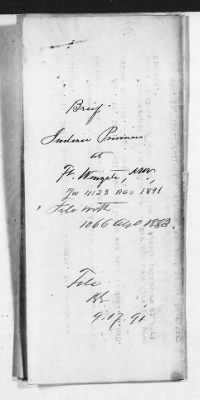 Brief.
Indian Prisoners
at
Ft. Wingate, NM
11123 AGO 1891
File with
1066 AGO 1883.
File
9.17.91